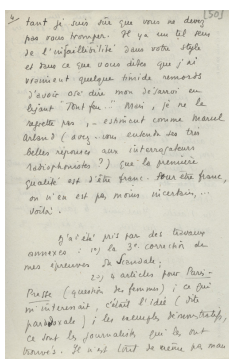 4. [50]
tant je suis sûr que vous ne devez
pas vous tromper. Il y a un tel ton
de l'infaillibilité dans votre style
et dans ce que vous dites que j'ai
vraiment quelque timide remords
d'avoir osé dire mon désarroi en
lisant "Tout feu..." Mais, je ne le
regrette pas, – estimant comme Marcel
Arland (avez-vous entendu ses très
belles réponses aux interrogateurs
radiophonistes ?) que la première
qualité est d'être franc. Pour être franc,
on n'en est pas moins incertain, ...
voilà.
J'ai été pris par des travaux
annexes : 1°) la 3e correction de
mes épreuves du Scandale ;
2°) 4 articles pour Paris-
Presse (question des femmes) ; ce qui
m'intéressait, c'était l'idée (dite
paradoxale) ; les exemples démonstratifs,
ce sont les journalistes qui les ont
fournis. Il n'est tout de même pas mau